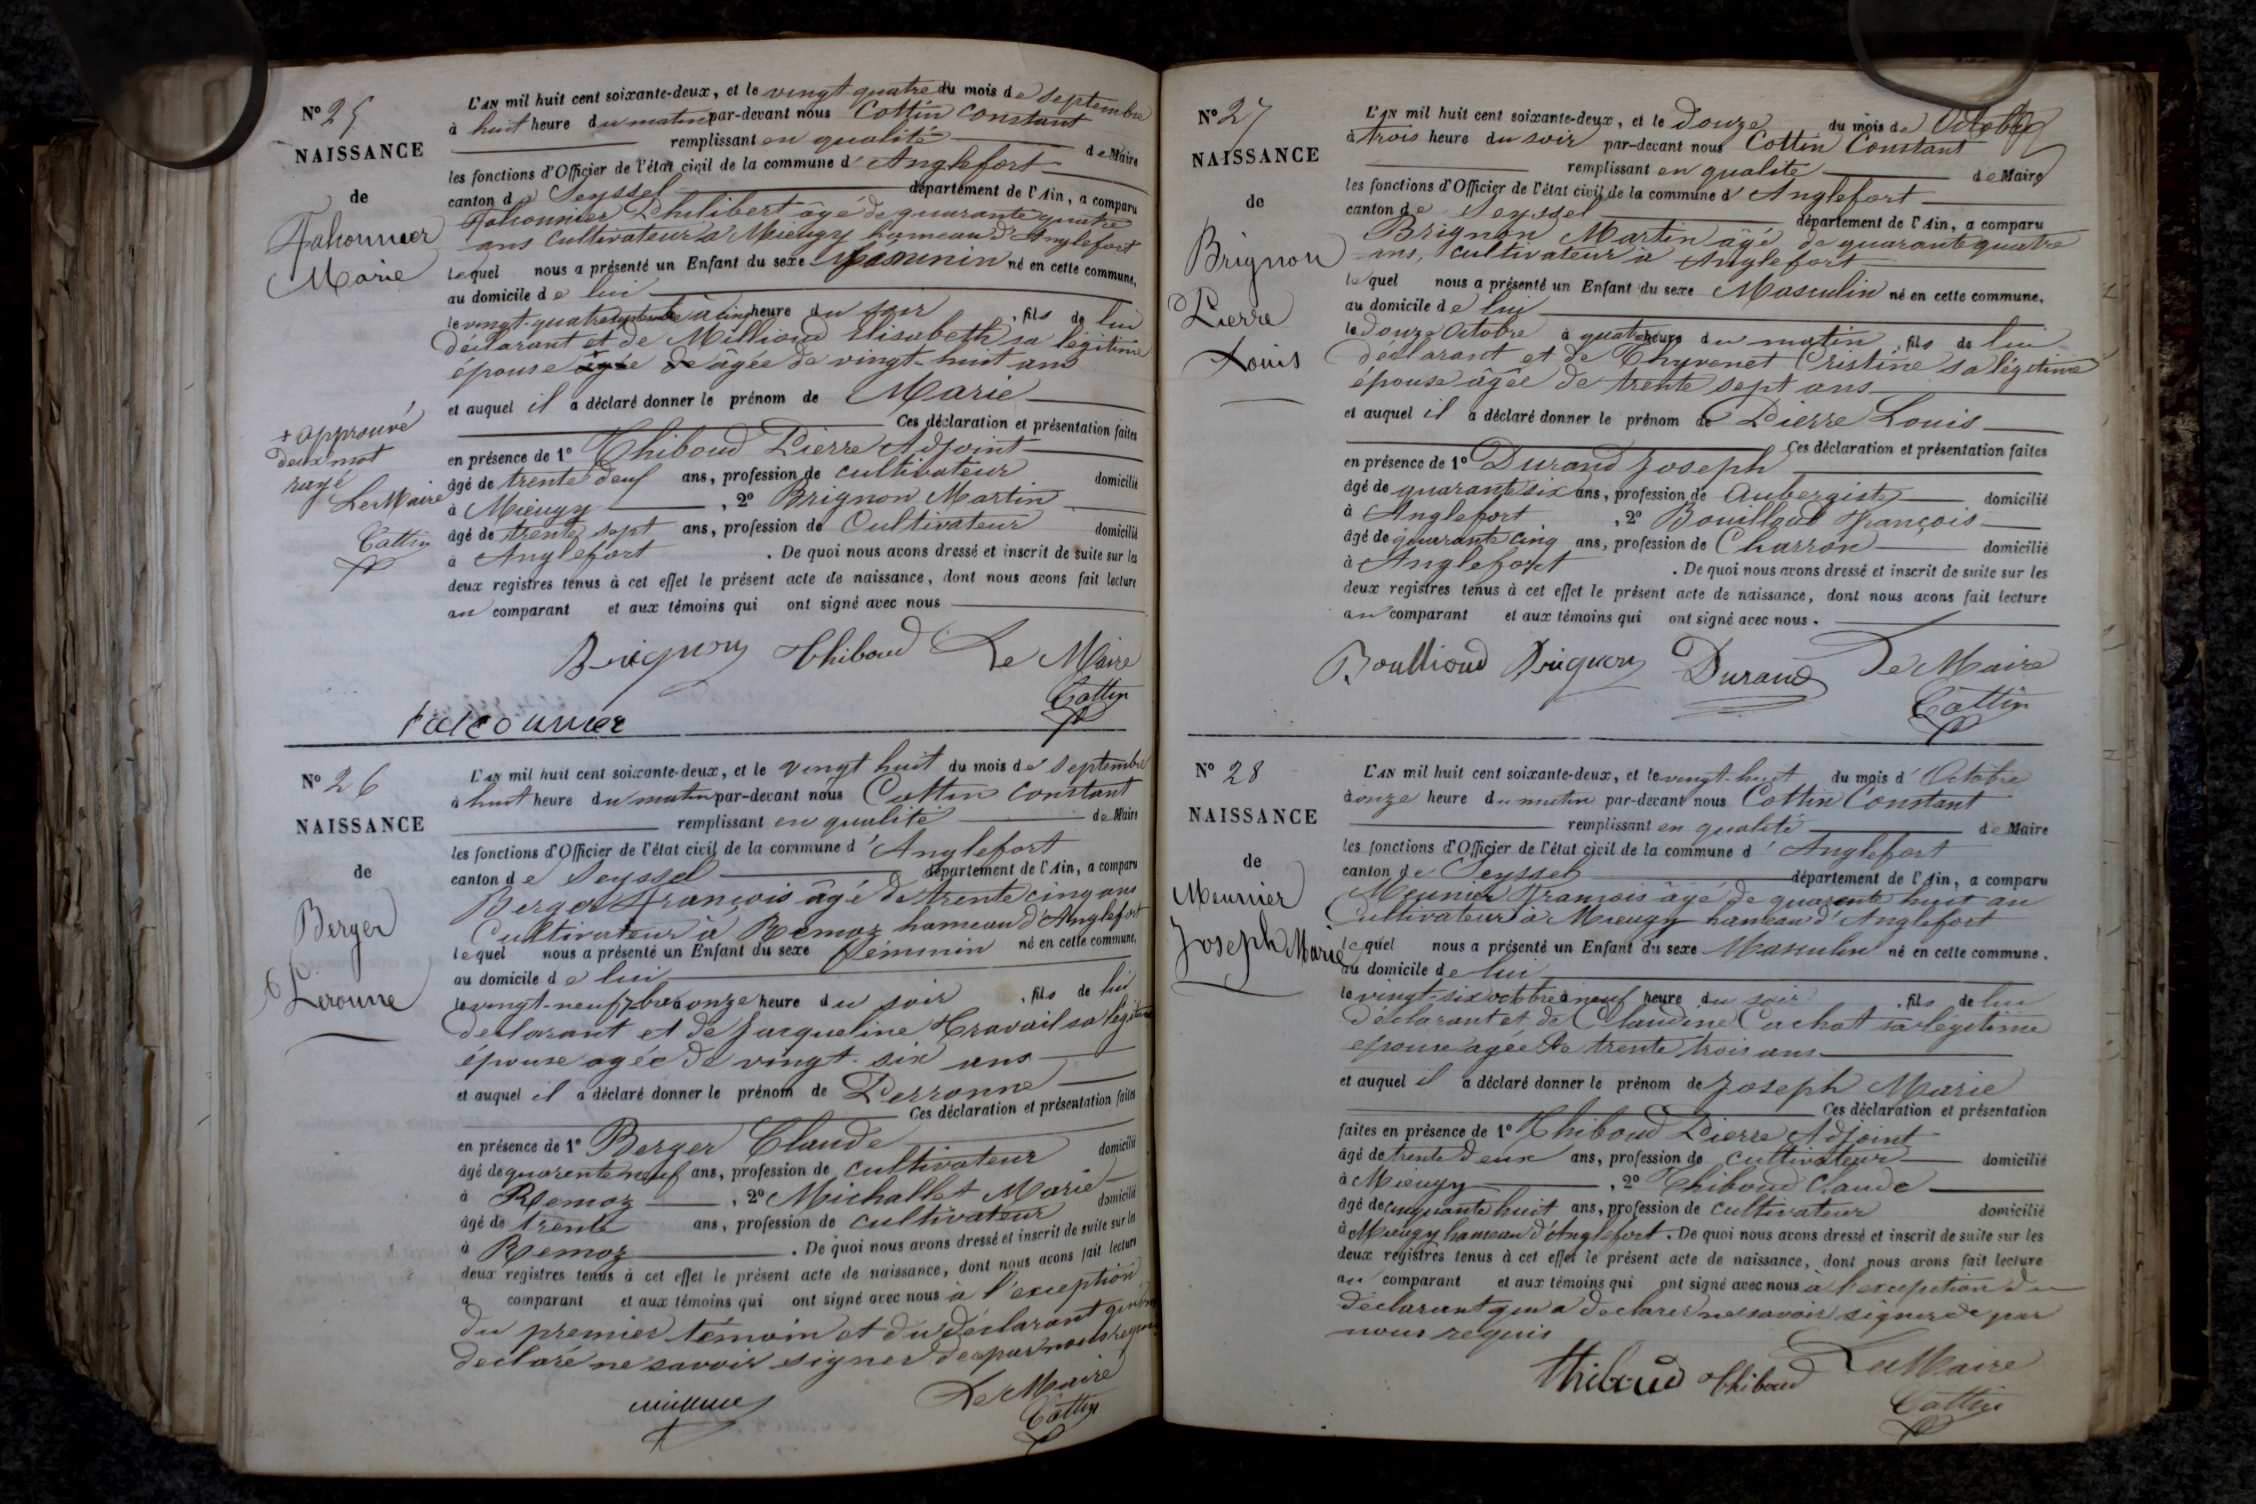 N° 25
NAISSANCE
de
Falconnier
Marie
+ approuvé
deux mot
rayé
Le Maire
Cottin
L'AN mil huit cent soixante-deux, et le vingt quatre du mois de septembre
à huit heure du matin par-devant nous Cottin Constant
remplissant en qualité de Maire
les fonctions d'Officier de l'état civil de la commune d'Anglefort
canton de Seyssel département de l'Ain, a comparu
Falconnier Philibert âgé de quarante quatre
ans cultivateur à Mieugy hameau d'Anglefort
lequel nous a présenté un Enfant du sexe féminin né en cette commune,
au domicile de lui
le vingt-quatre septembre à cinq heure du soir, fils de lui
déclarant et de Millioud Elisabeth sa légitime
épouse âgée de âgée de vingt-huit ans
et auquel il a déclaré donner le prénom de Marie
Ces déclaration et présentation faites
en présence de 1° Thiboud Pierre Adjoint
âgé de trente deux ans, profession de cultivateur domicilié
à Mieugy, 2° Brignon Martin
âgé de trente sept ans, profession de Cultivateur domicilié
à Anglefort. De quoi nous avons dressé et inscrit de suite sur les
deux registres tenus à cet effet le présent acte de naissance, dont nous avons fait lecture
au comparant et aux témoins qui ont signé avec nous
Brignon Thiboud Le Maire
Cottin
falconnier
N° 26
NAISSANCE
de
Berger
Peronne
L'AN mil huit cent soixante-deux, et le vingt huit du mois de septembre
à huit heure du matin par-devant nous Cottin Constant
remplissant en qualité de Maire
les fonctions d'Officier de l'état civil de la commune d'Anglefort
canton de Seyssel département de l'Ain, a comparu
Berger François âgé de trente cinq ans
Cultivateur à Remoz hameau d'Anglefort
lequel nous a présenté un Enfant du sexe féminin né en cette commune,
au domicile de lui
le vingt-neuf 7bre à onze heure du soir, fils de lui
déclarant et de Jacqueline Travail sa légitime
épouse agée de vingt-six ans
et auquel il a déclaré donner le prénom de Perronne
Ces déclaration et présentation faites
en présence de 1° Berger Claude
âgé de quarente neuf ans, profession de cultivateur domicilié
à Remoz, 2° Michallet Marie
âgé de trente ans, profession de cultivateur domicilié
à Remoz. De quoi nous avons dressé et inscrit de suite sur les
deux registres tenus à cet effet le présent acte de naissance, dont nous avons fait lecture
a comparant et aux témoins qui ont signé avec nous à l'exception
du premier témoin et du déclarant qui ont
declaré ne savoir signer de par nous requis
Le Maire
Cottin
N° 27
NAISSANCE
de
Brignon
Pierre
Louis
L'AN mil huit cent soixante-deux, et le Douze du mois de Octobre
à trois heure du soir par-devant nous Cottin Constant
remplissant en qualité de Maire
les fonctions d'Officier de l'état civil de la commune d'Anglefort
canton de Seyssel département de l'Ain, a comparu
Brignon Martin âgé de quarante quatre
ans, cultivateur à Anglefort
lequel nous a présenté un Enfant du sexe Masculin né en cette commune,
au domicile de lui
le douze Octobre à quatre heure du matin, fils de lui
déclarant et de Thyvenet Cristine sa légitime
épouse âgée de trente sept ans
et auquel il a déclaré donner le prénom de Pierre Louis
Ces déclaration et présentation faites
en présence de 1° Durand Joseph
âgé de quarante six ans, profession de Aubergiste domicilié
à Anglefort, 2° Bouilloud François
âgé de quarante cinq ans, profession de Charron domicilié
à Anglefort. De quoi nous avons dressé et inscrit de suite sur les
deux registres tenus à cet effet le présent acte de naissance, dont nous avons fait lecture
au comparant et aux témoins qui ont signé avec nous.
Boullioud Brignon Durand Le Maire
Cottin
N° 28
NAISSANCE
de
Meunier
Joseph Marie
L'AN mil huit cent soixante-deux, et le vingt-huit du mois d'Octobre
à onze heure du matin par-devant nous Cottin Constant
remplissant en qualité de Maire
les fonctions d'Officier de l'état civil de la commune d'Anglefort
canton de Seyssel département de l'Ain, a comparu
Meunier François âgé de quarente huit an
Cultivateur à Mieugy hameau d'Anglefort
lequel nous a présenté un Enfant du sexe Masculin né en cette commune.
au domicile de lui
le vingt-six octobre à neuf heure du soir, fils de lui
déclarant et de Claudine Cachat sa légitime
epouse agee de trente trois ans
et auquel il a déclaré donner le prénom de Joseph Marie
Ces déclaration et présentation
faites en présence de 1° Thiboud Pierre Adjoint
âgé de trente deux ans, profession de cultivateur domicilié
à Mieugy, 2° Thiboud Claude
âgé de cinquante huit ans, profession de cultivateur domicilié
à Mieugy hameau d'Anglefort. De quoi nous avons dressé et inscrit de suite sur les
deux registres tenus à cet effet le présent acte de naissance, dont nous avons fait lecture
au comparant et aux témoins qui ont signé avec nous à l'exception du
déclarant qui a declarer ne savoir signer de par
nous requis
Thiboud Thiboud Le Maire
Cottin